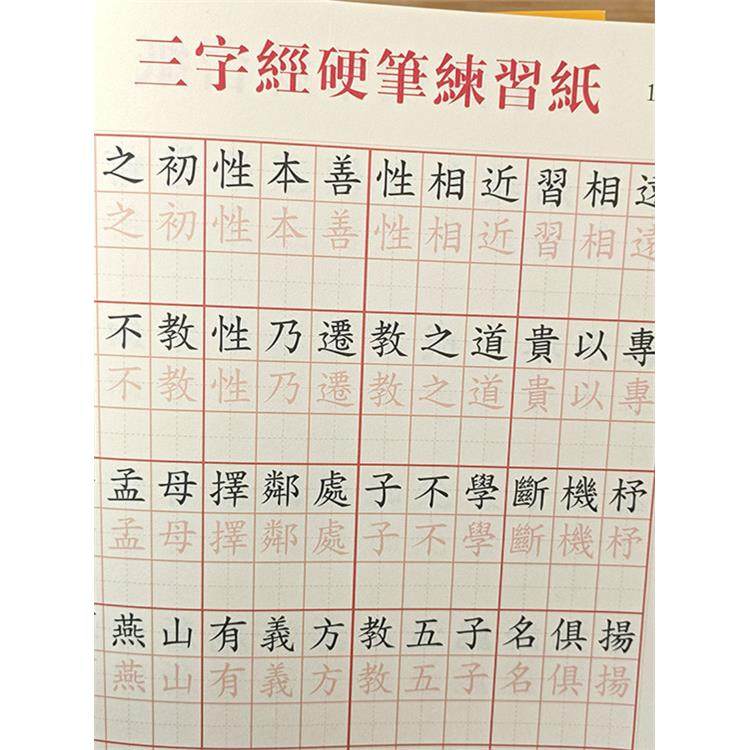 三字經硬筆練習紙
1
之初性本善性相近習相遠
之初性本善性相近習相遠
不教性乃遷教之道貴以專
不教性乃遷教之道貴以專
孟母擇鄰處子不學斷機杼
孟母擇鄰處子不學斷機杼
燕山有義方教五子名俱揚
燕山有義方教五子名俱揚